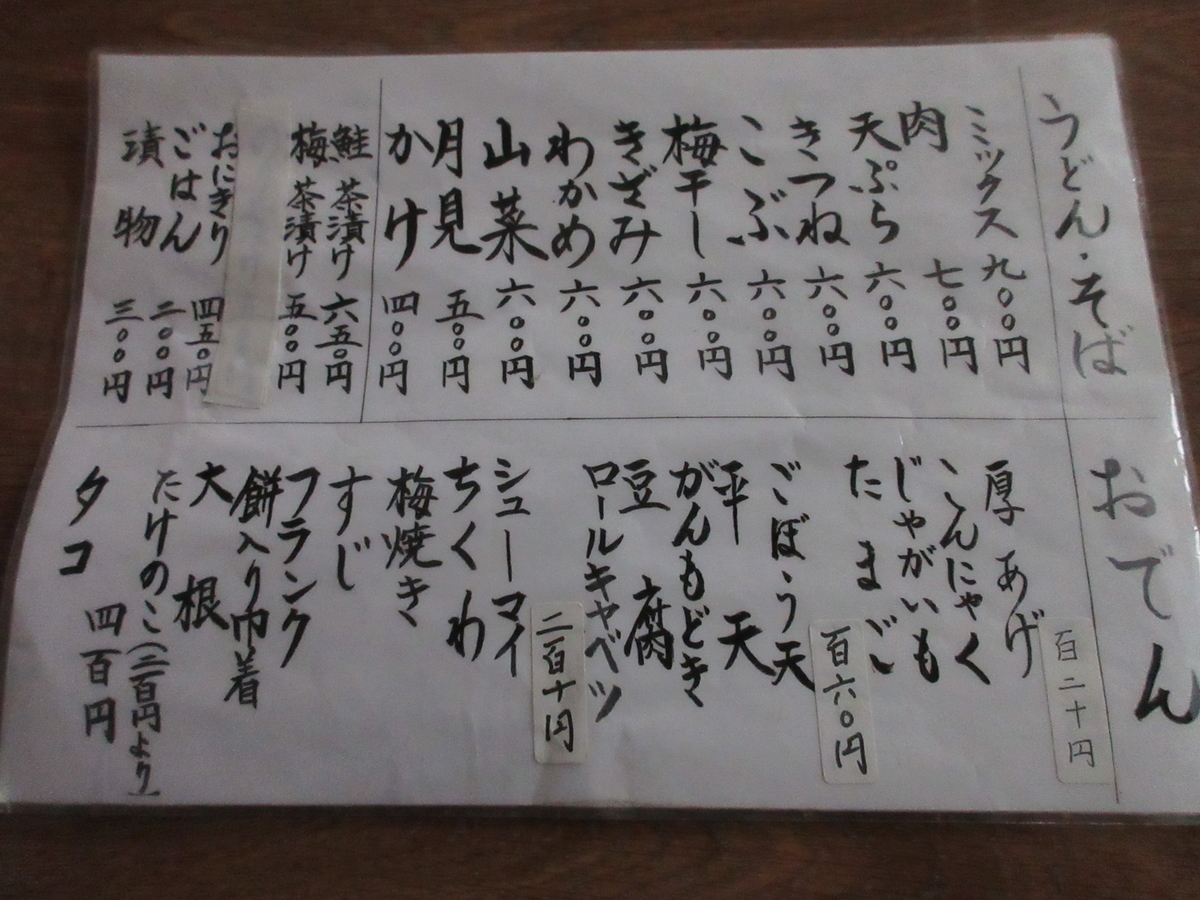 うどん・そば
ミックス 九〇〇円
肉 七〇〇円
天ぷら 六〇〇円
きつね 六〇〇円
こぶ 六〇〇円
梅干し 六〇〇円
きざみ 六〇〇円
わかめ 六〇〇円
山菜 六〇〇円
月見 五〇〇円
かけ 四〇〇円
鮭茶漬け 六五〇円
梅茶漬け 五〇〇円
おにぎり 四五〇円
ごはん 二〇〇円
漬物 三〇〇円
おでん
百二十円
厚あげ
こんにゃく
じゃがいも
たまご
百六〇円
ごぼう天
平天
がんもどき
豆腐
ロールキャベツ
二百十円
シューマイ
ちくわ
梅焼き
すじ
フランク
餅入り巾着
大根
たけのこ(二百円より)
タコ 四百円